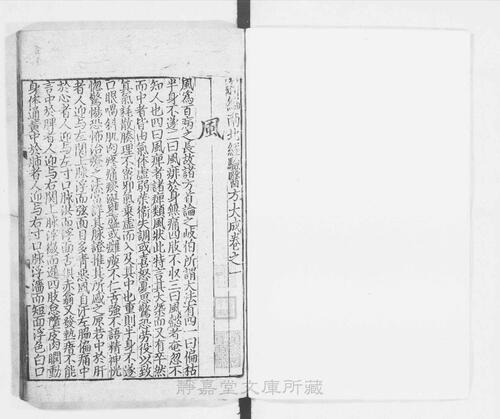 南北經驗醫方大成卷之一
風
風爲百病之長故諸方首論之岐伯所謂大法有四一曰偏枯
半身不遂二曰風痱於身無痛四肢不收三曰風懿者奄忽不
知人也四曰風痺者諸痺類風狀此特言其大槩而又有卒然
而中者皆由氣體虛弱榮衛失調或喜怒憂思驚恐勞役以致
真氣耗散腠理不密邪氣乘虛而入及其中也重則半身不遂
口眼喎斜肌肉疼痛痰涎壅盛或癱瘓不仁舌強不語精神恍
惚驚惕恐怖治療之法當詳其脉證推其所感之原若中於肝
者人迎與左關上脉浮而弦面目多青惡風自汗左脇偏痛中
於心者人迎與左寸口脉洪而浮面舌俱赤翕翕發熱瘖不能
言中於脾者人迎與右關上脉浮微而遲四肢怠墮皮肉瞤動
身体通黃中於肺者人迎與右寸口脉浮濇而短面浮色白口
靜嘉堂文庫所藏